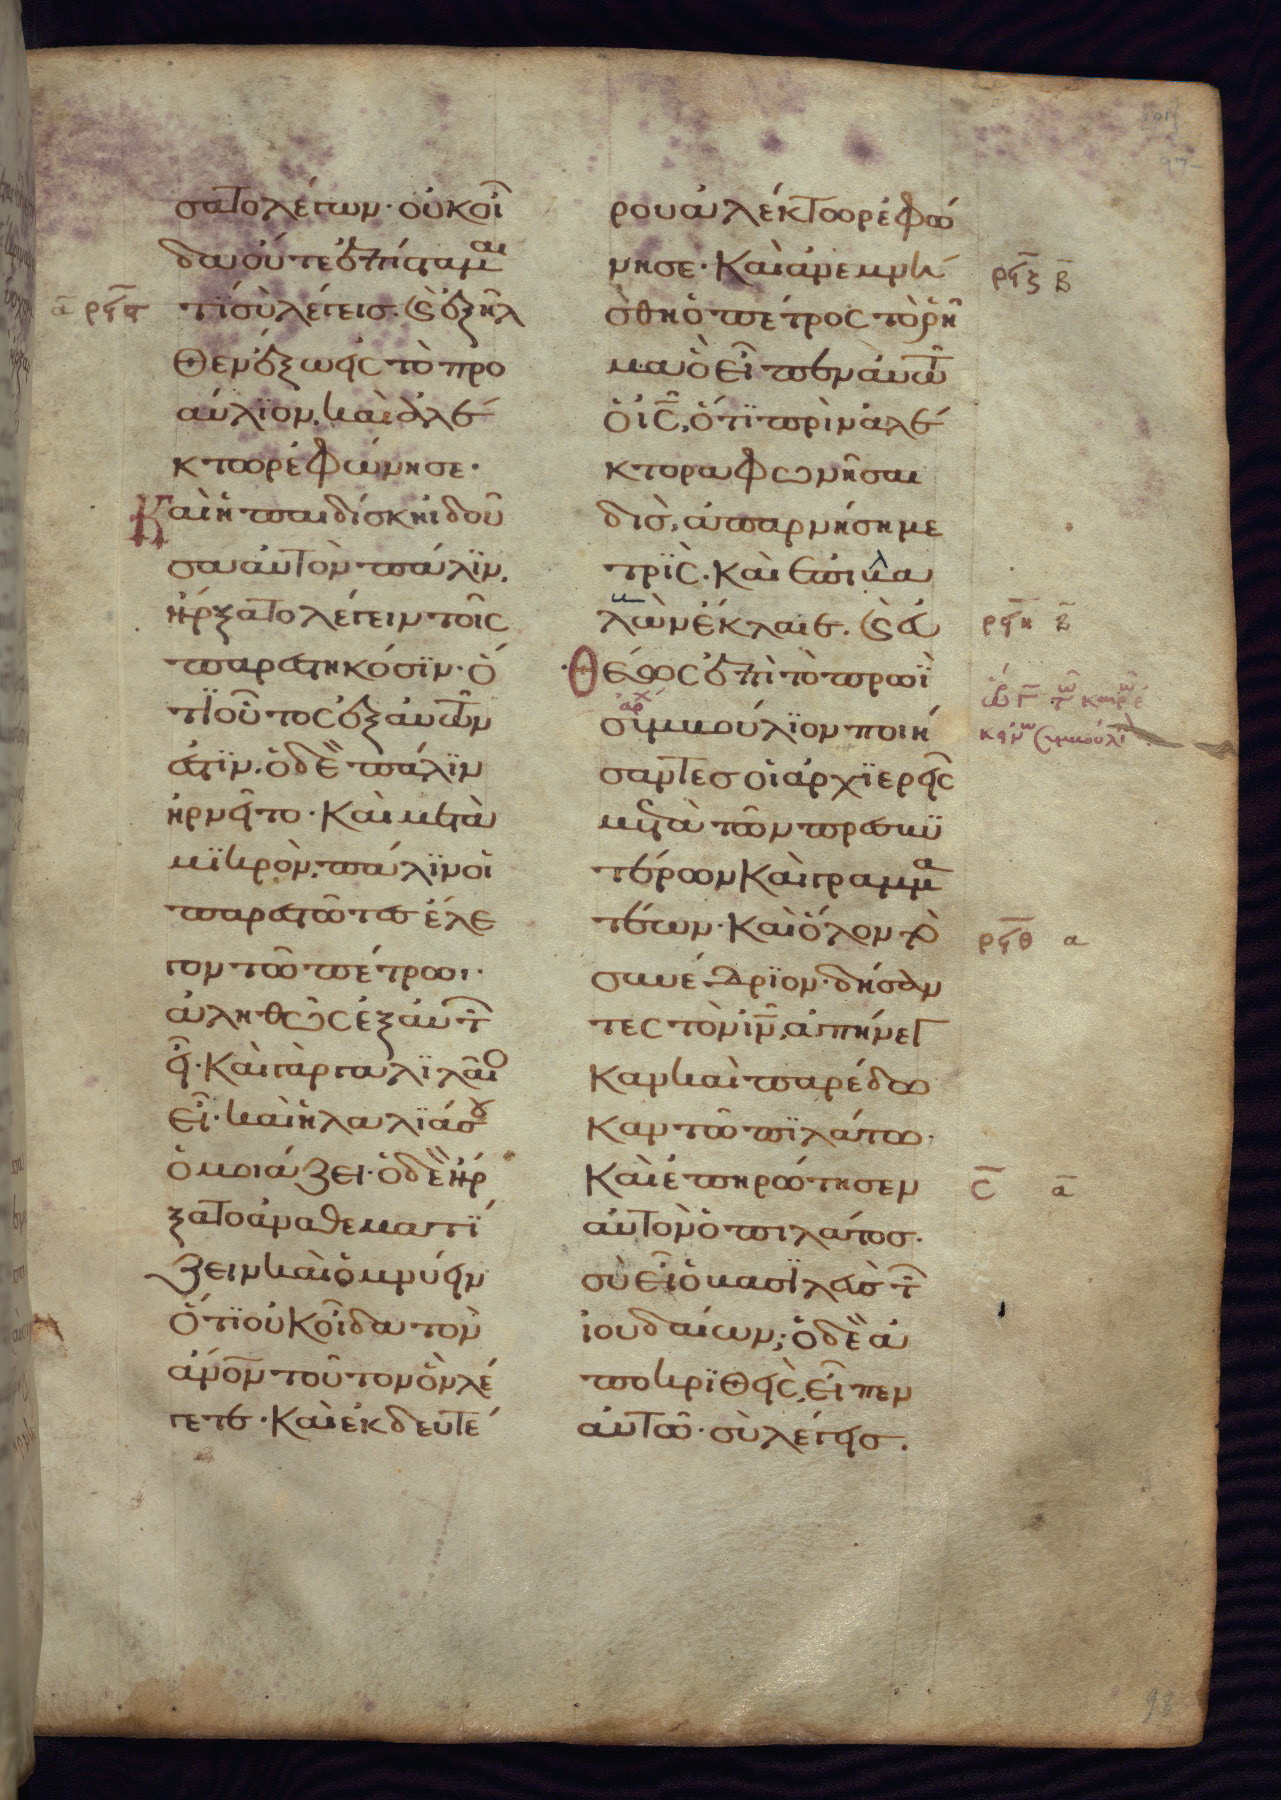 σατο λέγων· οὐκ οἶ
δα οὔτε ἐπίσταμαι
τί σὺ λέγεις. καὶ ἐξῆλ
θεν ἔξω εἰς τὸ προ
αύλϊον, καὶ ἀλέ
κτωρ ἐφώνησε·
Καὶ ἡ παιδίσκη ἰδοῦ
σα αὐτὸν πάλϊν,
ἤρξατο λέγειν τοῖς
παρεστηκόσϊν· ὅ
τϊ οὗτος ἐξ αὐτῶν
ἐστϊν. ὁ δὲ πάλϊν
ἠρνεῖτο· Καὶ μετὰ
μϊκρὸν, πάλϊν οἱ
παρεστῶτες ἔλε
γον τῶ πέτρωι·
ἀληθῶς ἐξ αὐτῶν
εἶ· Καὶ γὰρ γαλϊλαῖος
εἶ· καὶ ἡ λαλϊά σου
ὁμοιάζει· ὁ δὲ ἤρ
ξατο ἀναθεματϊ
ζειν καὶ ὀμνύειν
ὅτϊ οὐκ οἶδα τὸν
ἄνον τοῦτον ὃν λέ
γετε· Καὶ ἐκ δευτέ
ρου ἀλέκτωρ ἐφώ
νησε· Καὶ ἀνεμνή
σθη ὁ πέτρος τὸ ῥῆ
μα ὃ εἶπεν αὐτῶ
ὁ ις, ὅτϊ πρὶν ἀλέ
κτορα φωνῆσαι
δὶς, ἀπαρνήση με
τρϊς· Καὶ ἐπιβα
λὼν ἔκλαιε. καὶ εὐ
θέως ἐπὶ τὸ πρωϊ
συμβούλϊον ποιή
σαντες οἱ ἀρχϊερεῖς
μετὰ τῶν πρεσβϋ
τέρων Καὶ γραμμα
τέων· Καὶ ὅλον τὸ
συνέδρϊον· δήσαν
τες τὸν ιν, ἀπήνεγ
καν καὶ παρέδω
καν τῶ πϊλάτω·
Καὶ ἐπηρώτησεν
αὐτὸν ὁ πιλάτος·
σὺ εἶ ὁ βασϊλεὺς τῶν
ἰουδαίων; ὁ δὲ ἀ
ποκρϊθεὶς, εἶπεν
αὐτῶ· σὺ λέγεις.
α ρϟϛ
ρϟζ β
ρϟη β
ρϟθ α
ς α
αρχ
97
98